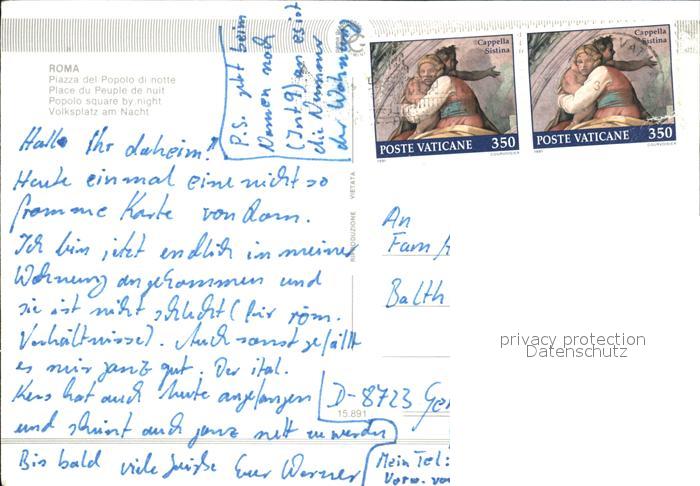 ROMA
Piazza del Popolo di notte
Place du Peuple de nuit
Popolo square by night
Volksplatz am Nacht
P.S. gebt beim
Namen noch
(Int 9) an es ist
die Nummer
der Wohnung
Cappella
Sistina
POSTE VATICANE 350
1991 COURVOISIER
Cappella
Sistina
POSTE VATICANE 350
1991 COURVOISIER
Hallo Ihr daheim!
Heute einmal eine nicht so
fromme Karte von Rom.
Ich bin jetzt endlich in meiner
Wohnung angekommen und
sie ist nicht schlecht (für röm.
Verhältnisse). Auch sonst gefällt
es mir ganz gut. Der ital.
Kurs hat auch heute angefangen
und scheint auch ganz nett zu werden
Bis bald viele Grüße Euer Werner
RIPRODUZIONE VIETATA
An
Fam
Balth
D-8723 Ger
15.891
Mein Tel:
Vorw. von
privacy protection
Datenschutz